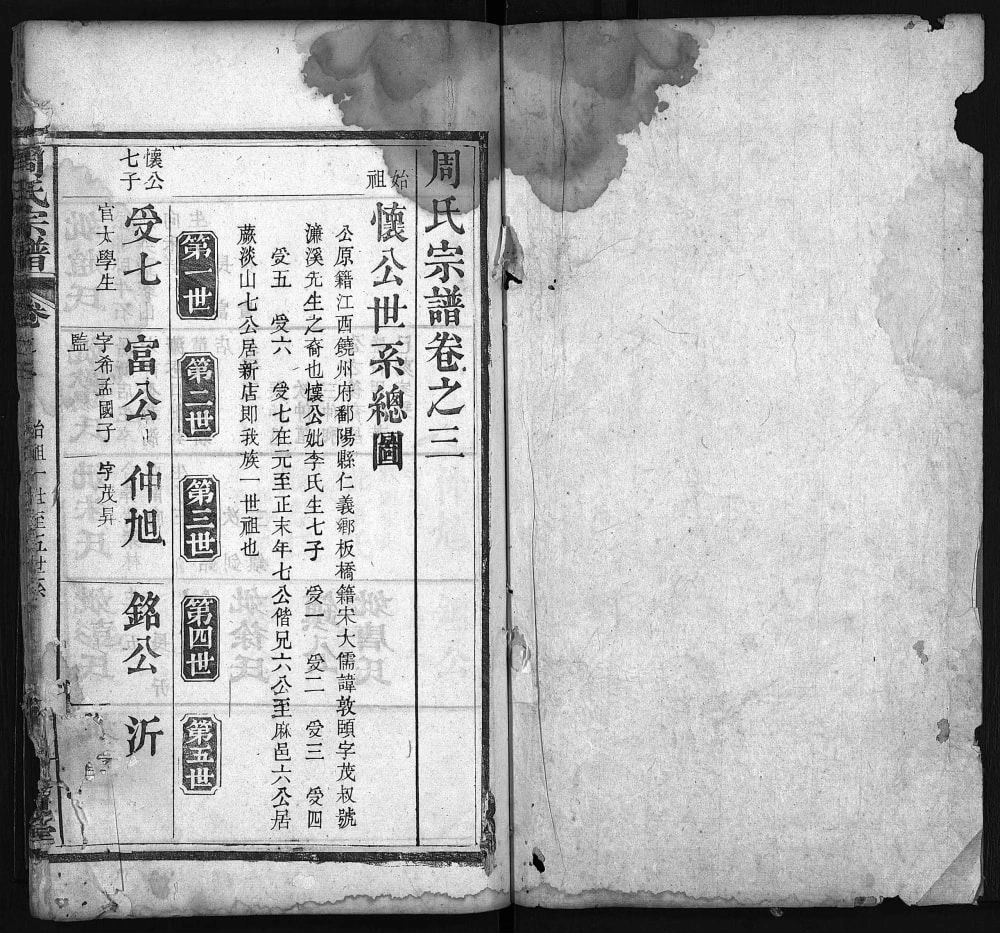 周氏宗譜卷之三
始祖
懷公世系總圖
公原籍江西饒州府鄱陽縣仁義鄉板橋籍宋大儒諱敦頤字茂叔號
濂溪先生之裔也懷公妣李氏生七子 受一 受二 受三 受四
受五 受六 受七在元至正末年七公偕兄六公至麻邑六公居
蕨淡山七公居新店即我族一世祖也
第一世
第二世
第三世
第四世
第五世
懷公七子
受七
官太學生
富公
字希孟國子監
仲旭
字茂昇
銘公
沂
周氏宗譜
卷
始祖一世至五世系
堂